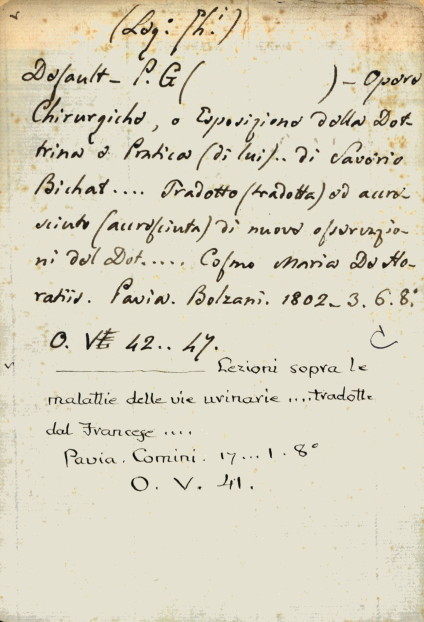 (Log: Ph:)
Desault - P. G ( ) - Opere
Chirurgiche, o Esposizione della Dot-
trina e Pratica (di lui).. di Saverio
Bichat.... Tradotto (tradotta) ed accre-
sciuto (accresciuta) di nuove osservazio-
ni del Dot..... Cosmo Maria De Ho-
ratiis. Pavia. Bolzani. 1802_3. 6. 8.°
O. V. 42.. 47. C
——— Lezioni sopra le
malattie delle vie urinarie ....tradotte
dal Francese ....
Pavia. Comini. 17... 1. 8°
O. V. 41.